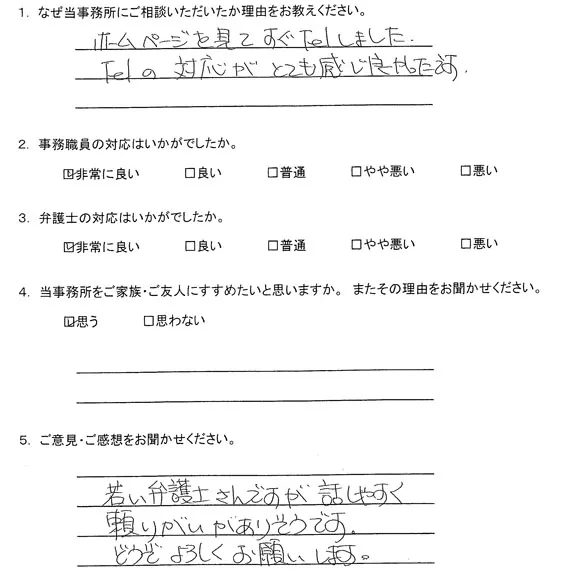 1. なぜ当事務所にご相談いただいたか理由をお教えください。
ホームページを見てすぐTelしました.
Telの対応がとても感じ良かったです.
2. 事務職員の対応はいかがでしたか。
☑非常に良い □良い □普通 □やや悪い □悪い
3. 弁護士の対応はいかがでしたか。
☑非常に良い □良い □普通 □やや悪い □悪い
4. 当事務所をご家族・ご友人にすすめたいと思いますか。 またその理由をお聞かせください。
☑思う □思わない
5. ご意見・ご感想をお聞かせください。
若い弁護士さんですが話しやすく
頼りがいがありそうです.
どうぞよろしくお願いします。